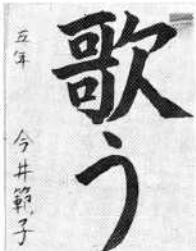 歌う
五年 今井範子